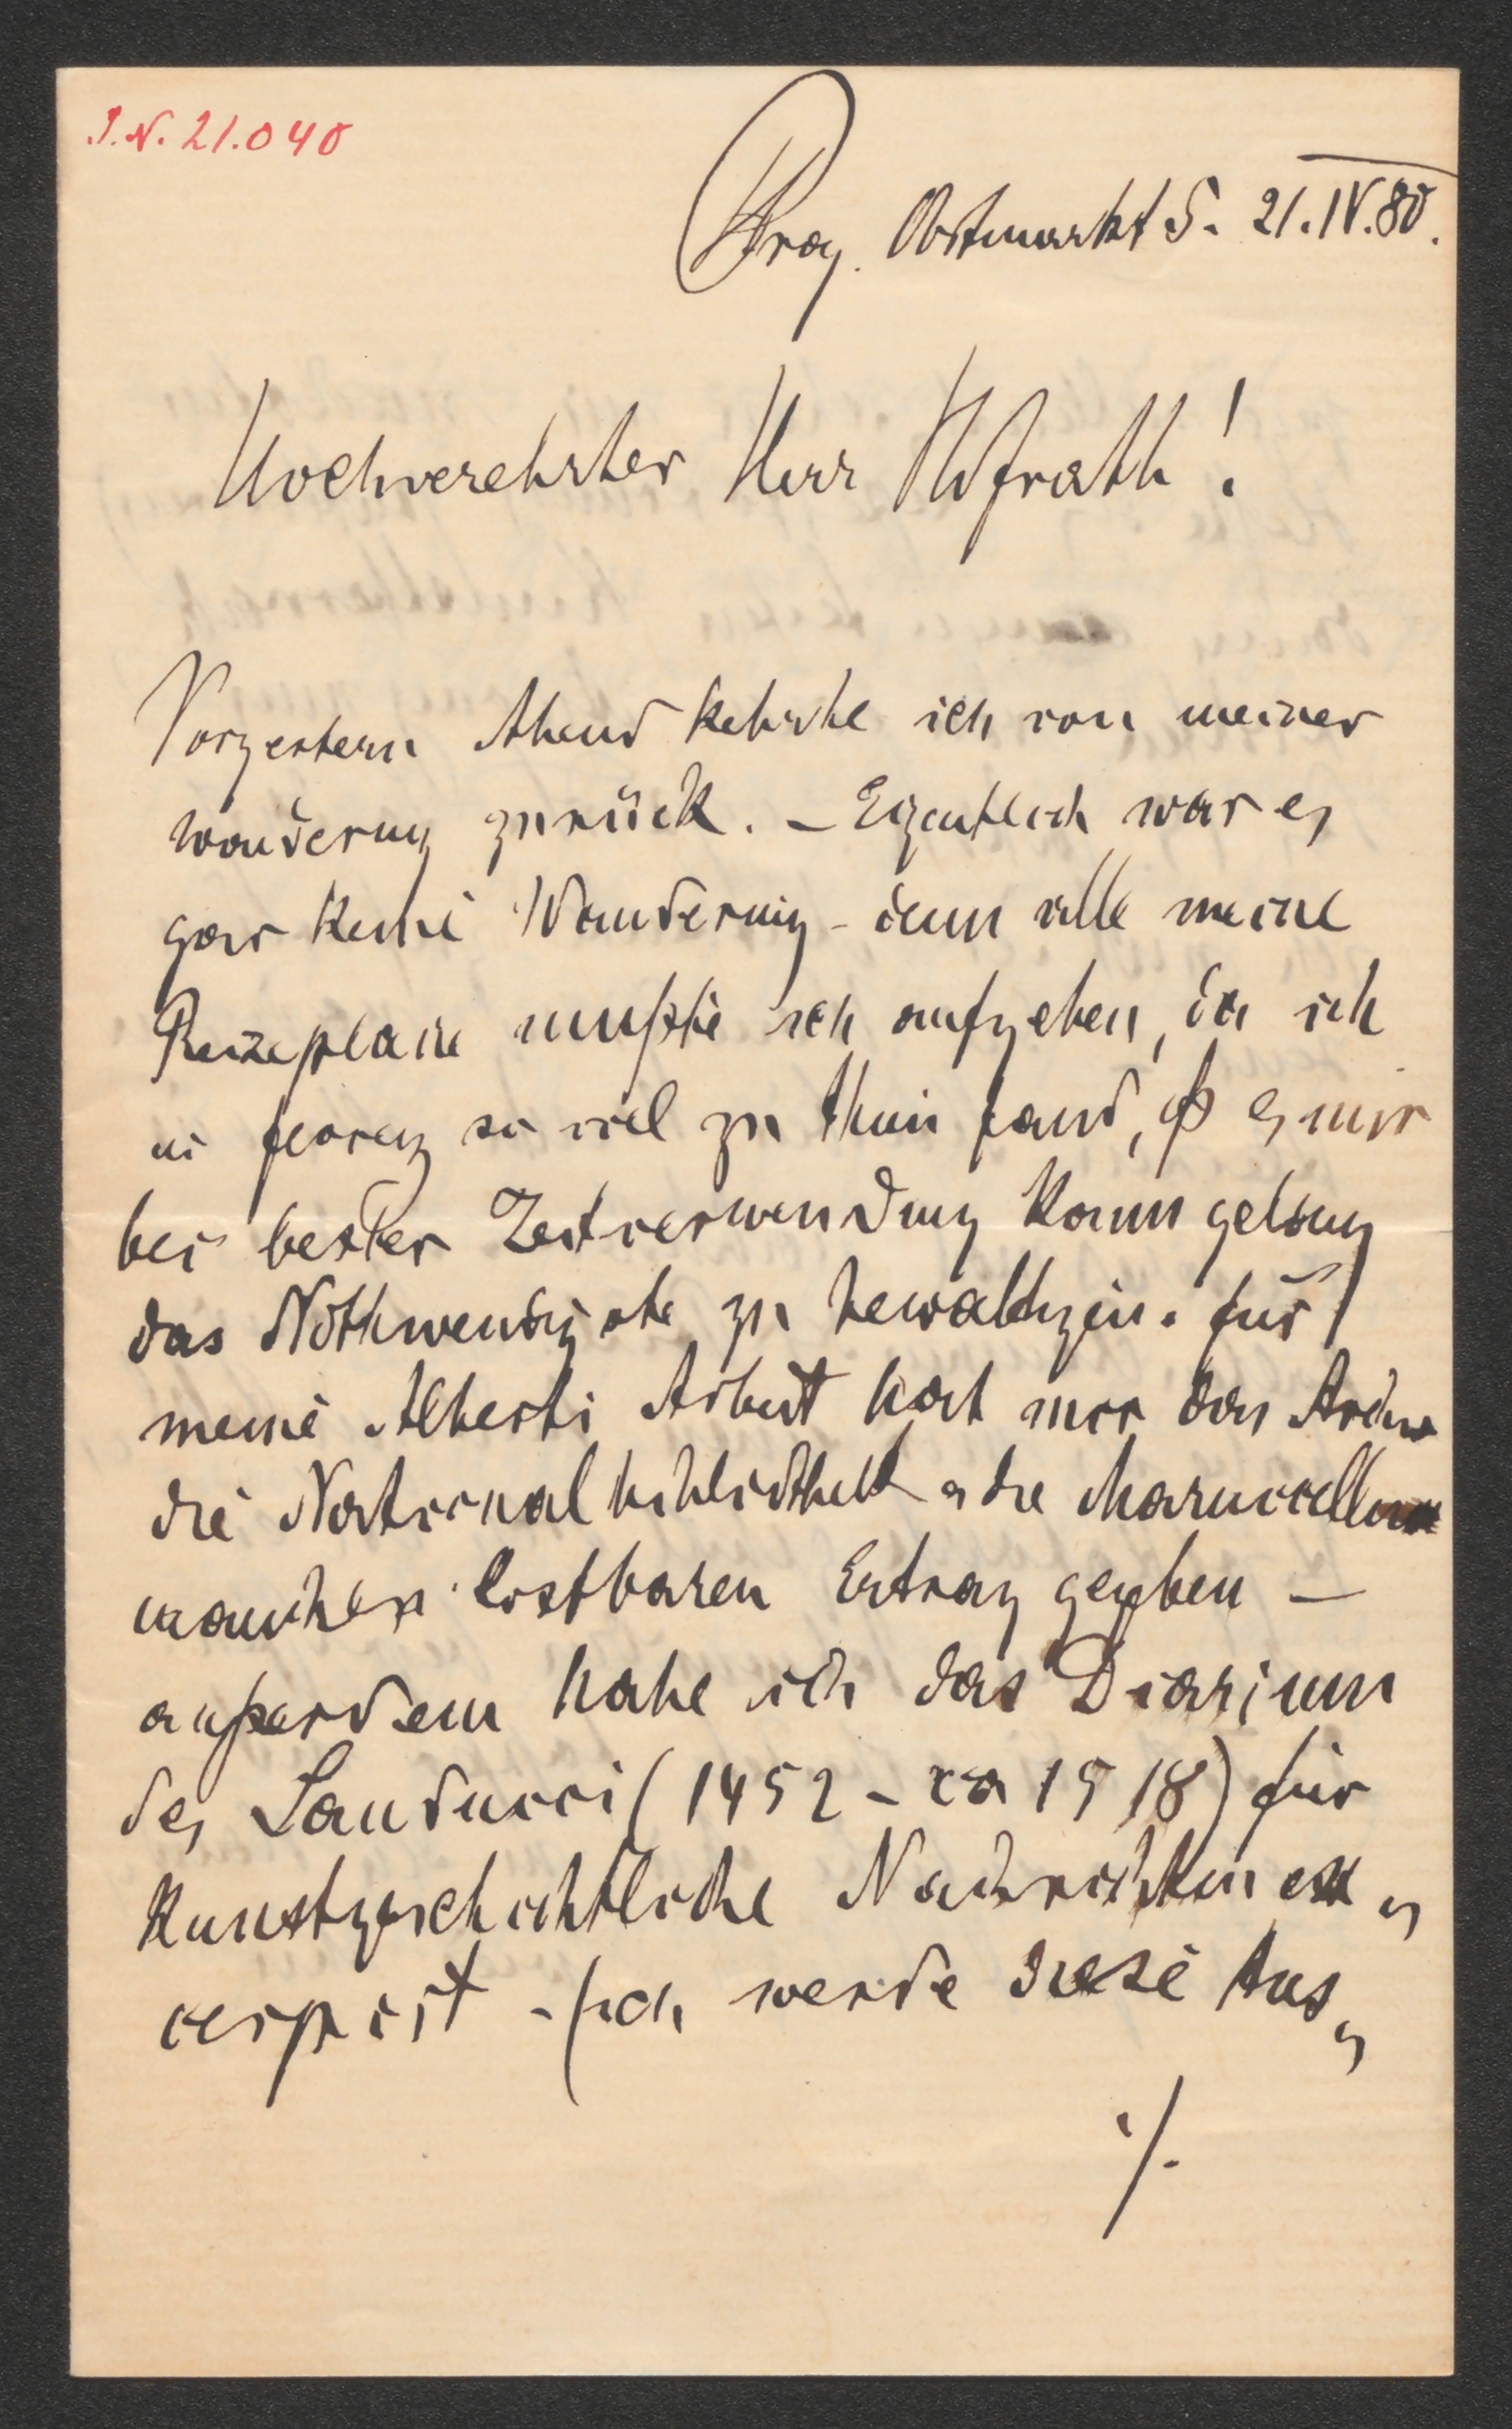 I.N. 21.040
Prag. Obstmarkt 5. 21.IV.80.
Hochverehrter Herr Hofrath!
Vorgestern Abend kehrte ich von meiner
Wanderung zurück. – Eigentlich war es
gar keine Wanderung – denn alle meine
Reisepläne mußte ich aufgeben, da ich
in Florenz so viel zu thun fand, dß es mir
bei bester Zeitverwendung kaum gelang
das Nothwendigste zu bewältigen. Für
meine Alberti Arbeit hat mir das Archiv
die Nationalbibliothek u die Marucelliana
manchen kostbaren Ertrag gegeben –
außerdem habe ich das Diarium
des Landucci (1452 – ca 1518) für
Kunstgeschichtliche Nachrichten ex„
cerpirt – Ich werde diese Aus„
./.